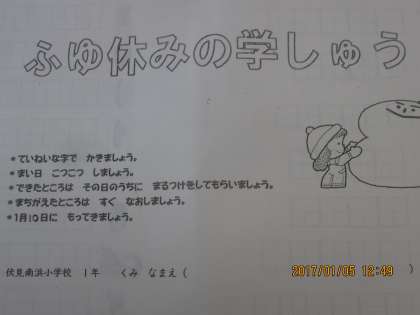 ふゆ休みの学しゅう
*ていねいな字で かきましょう。
*まい日 こつこつ しましょう。
*できたところは その日のうちに まるつけをしてもらいましょう。
*まちがえたところは すぐ なおしましょう。
*1月10日に もってきましょう。
伏見南浜小学校 1年 くみ なまえ( )
2017/01/05 12:49